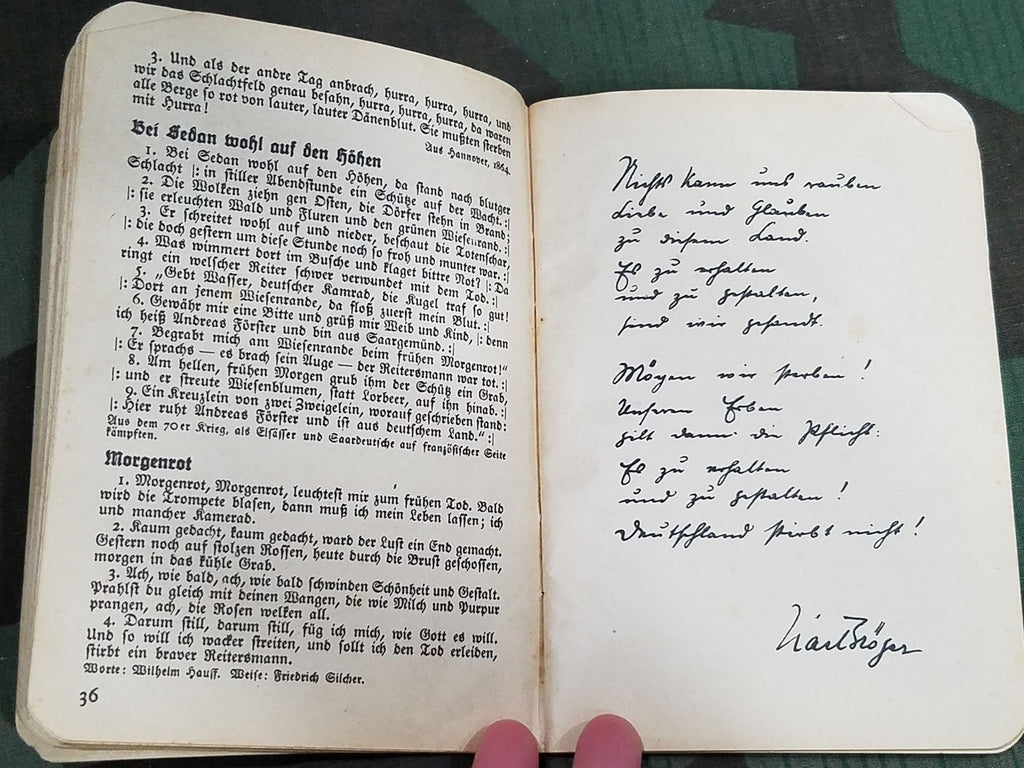 3. Und als der andre Tag anbrach, hurra, hurra, hurra, und
wir das Schlachtfeld genau besahn, hurra, hurra, hurra, da waren
alle Berge so rot von lauter, lauter Dänenblut. Sie mußten sterben
mit Hurra!
Aus Hannover, 1864.
Bei Sedan wohl auf den Höhen
1. Bei Sedan wohl auf den Höhen, da stand nach blutger
Schlacht |: in stiller Abendstunde ein Schütze auf der Wacht. :|
2. Die Wolken ziehn gen Osten, die Dörfer stehn in Brand;
|: sie erleuchten Wald und Fluren und den grünen Wiesenrand. :|
3. Er schreitet wohl auf und nieder, beschaut die Totenschar,
|: die doch gestern um diese Stunde noch so froh und munter war. :|
4. Was wimmert dort im Busche und klaget bittre Not? |: Da
ringt ein welscher Reiter schwer verwundet mit dem Tod. :|
5. „Gebt Wasser, deutscher Kamrad, die Kugel traf so gut!
|: Dort an jenem Wiesenrande, da floß zuerst mein Blut. :|
6. Gewähr mir eine Bitte und grüß mir Weib und Kind, |: denn
ich heiß Andreas Förster und bin aus Saargemünd. :|
7. Begrabt mich am Wiesenrande beim frühen Morgenrot!“
|: Er sprachs — es brach sein Auge — der Reitersmann war tot. :|
8. Am hellen, frühen Morgen grub ihm der Schütz ein Grab,
|: und er streute Wiesenblumen, statt Lorbeer, auf ihn hinab. :|
9. Ein Kreuzlein von zwei Zweigelein, worauf geschrieben stand:
|: Hier ruht Andreas Förster und ist aus deutschem Land.“ :|
Aus dem 70er Krieg, als Elsässer und Saardeutsche auf französischer Seite
kämpften.
Morgenrot
1. Morgenrot, Morgenrot, leuchtest mir zum frühen Tod. Bald
wird die Trompete blasen, dann muß ich mein Leben lassen; ich
und mancher Kamerad.
2. Kaum gedacht, kaum gedacht, ward der Lust ein End gemacht.
Gestern noch auf stolzen Rossen, heute durch die Brust geschossen,
morgen in das kühle Grab.
3. Ach, wie bald, ach, wie bald schwinden Schönheit und Gestalt.
Prahlst du gleich mit deinen Wangen, die wie Milch und Purpur
prangen, ach, die Rosen welken all.
4. Darum still, darum still, füg ich mich, wie Gott es will.
Und so will ich wacker streiten, und sollt ich den Tod erleiden,
stirbt ein braver Reitersmann.
Worte: Wilhelm Hauff. Weise: Friedrich Silcher.
36
Nichts kann uns rauben
Liebe und Glauben
zu diesem Land.
Es zu erhalten
und zu gestalten,
sind wir gesandt.
Mögen wir sterben!
Unseren Erben
gilt dann die Pflicht:
Es zu erhalten
und zu gestalten!
Deutschland stirbt nicht!
Karl Bröger